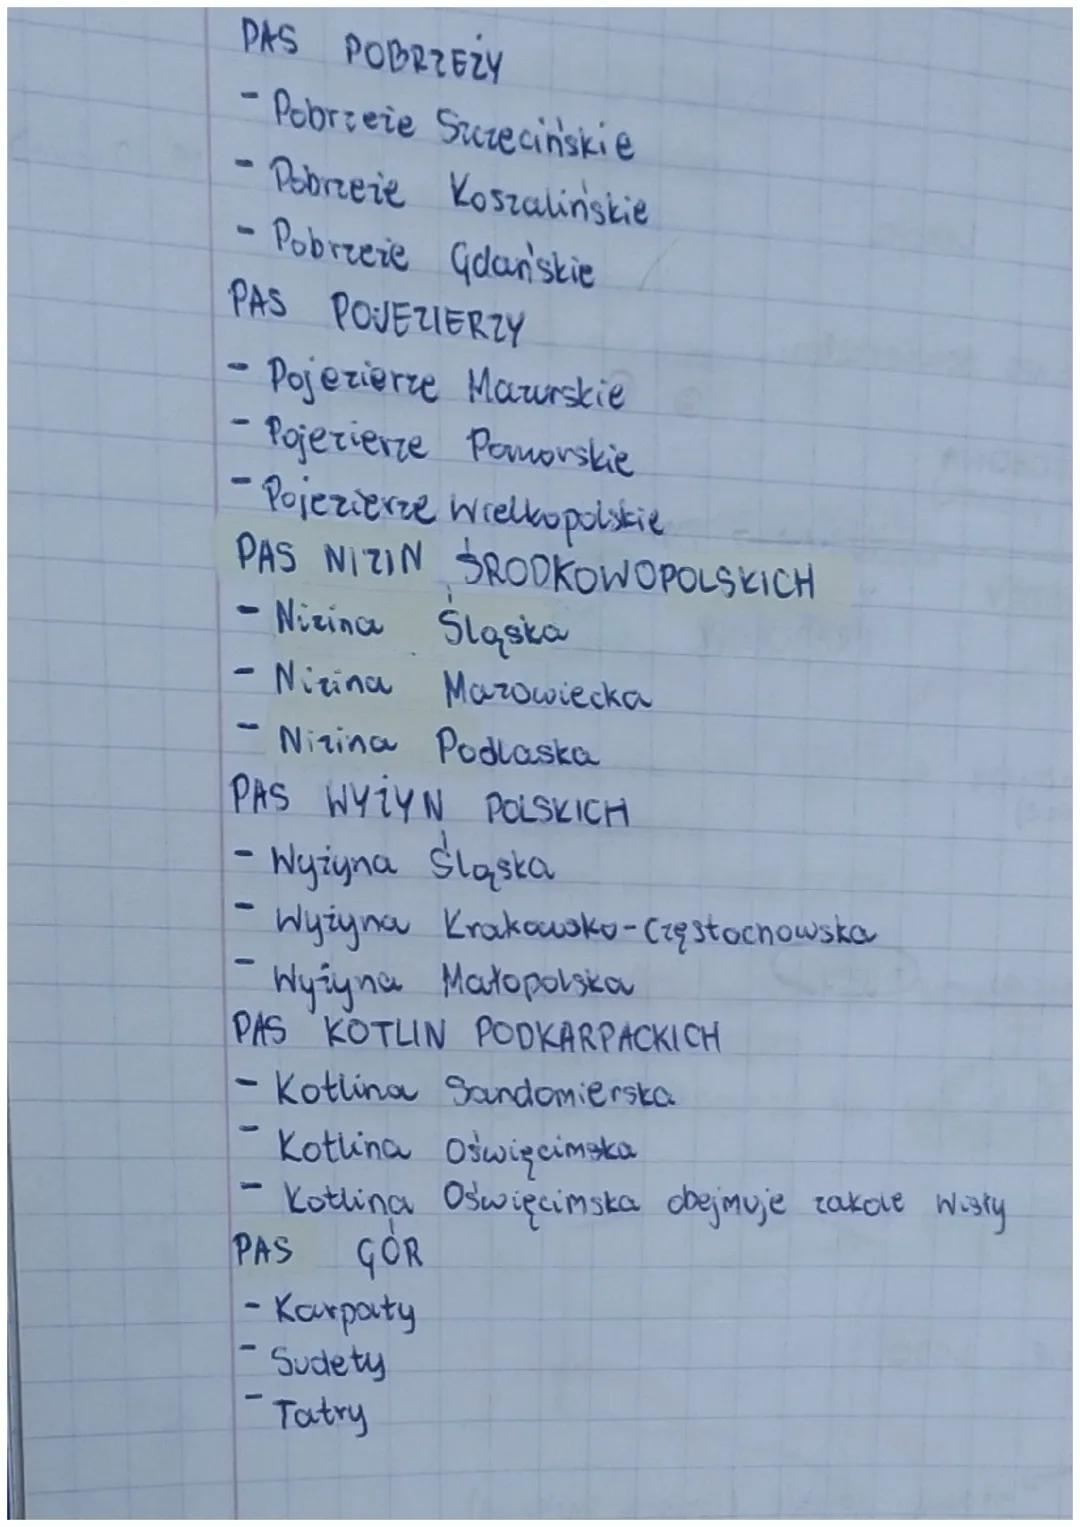 PAS POBRZEŻY
- Pobrzeże Szczecińskie
- Pobrzeże Koszalińskie
- Pobrzeże Gdańskie
PAS POJEZIERZY
- Pojezierze Mazurskie
- Pojezierze Pomorskie
- Pojezierze Wielkopolskie
PAS NIZIN ŚRODKOWOPOLSKICH
- Nizina Śląska
- Nizina Mazowiecka
- Nizina Podlaska
PAS WYŻYN POLSKICH
- Wyżyna Śląska
- Wyżyna Krakowsko-Częstochowska
- Wyżyna Małopolska
PAS KOTLIN PODKARPACKICH
- Kotlina Sandomierska
- Kotlina Oświęcimska
- Kotlina Oświęcimska obejmuje zakole Wisły
PAS GÓR
- Karpaty
- Sudety
- Tatry